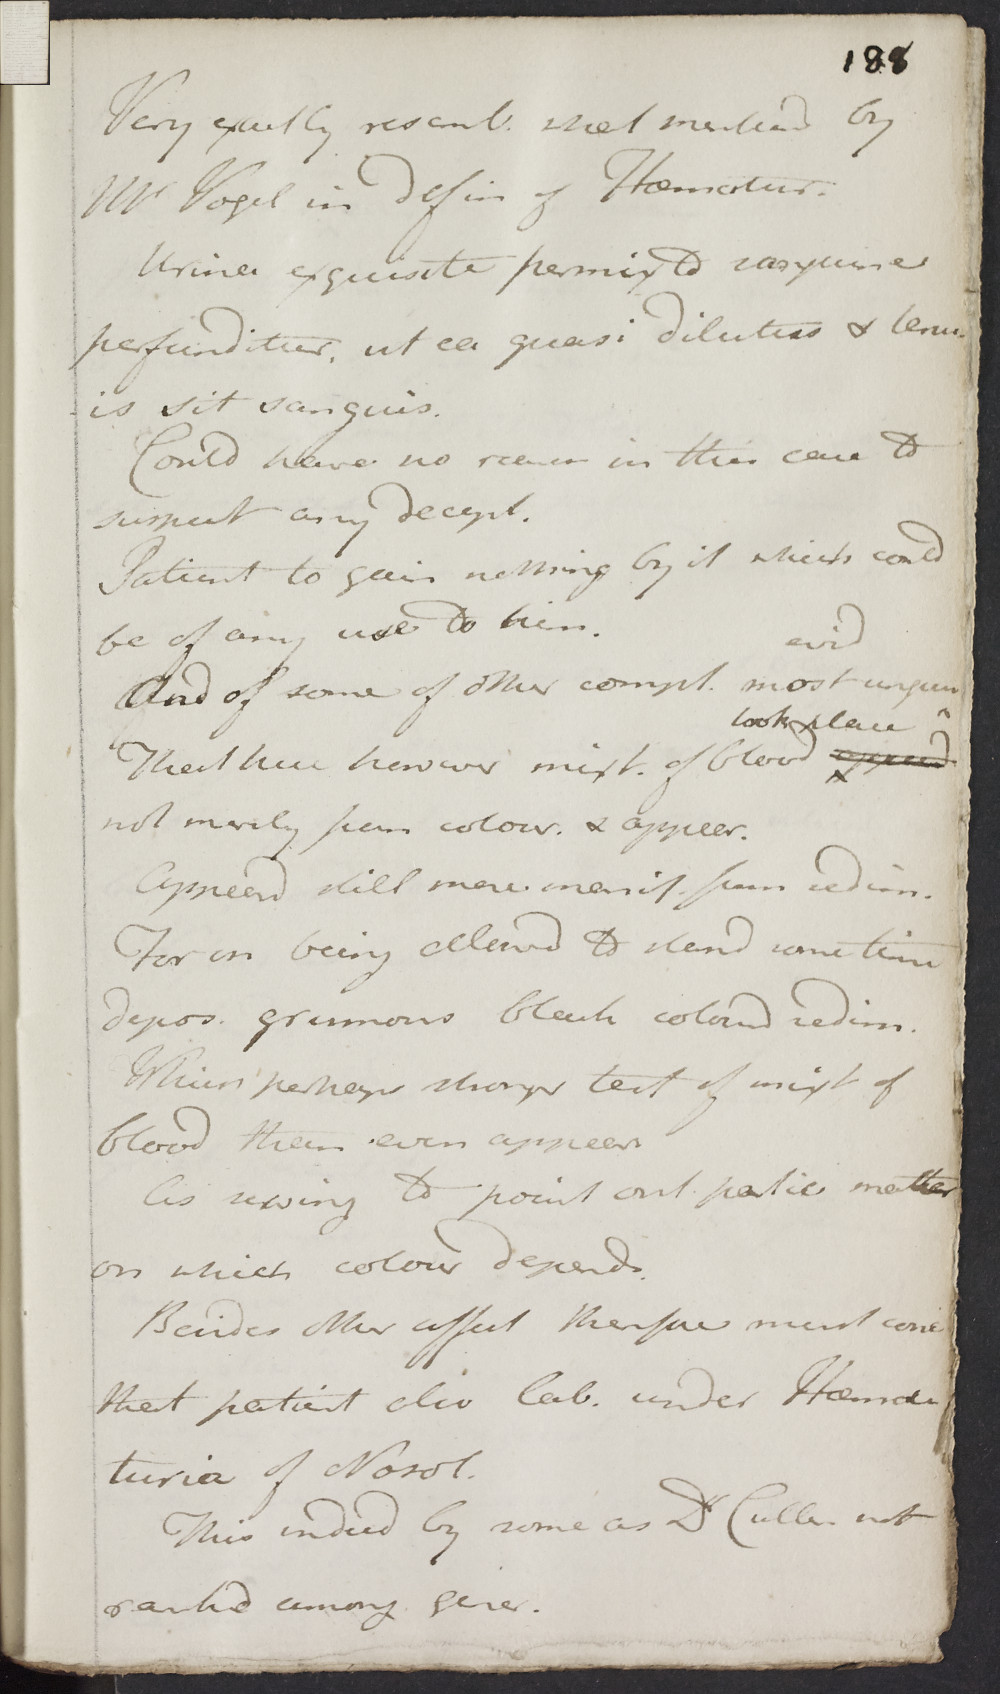 188
Very exactly resemb. that mentiond by
Mr Vogel in Defin of Hæmatur.
Urina exquisite permixto sanguine
perfunditur, ut ea quasi dilutus & tenu-
is sit sanguis.
Could have no reason in this case to
suspect any decept.
Patient to gain nothing by it which could
be of any use to him.
And of some of other compl. most unequiv
evid
That here however mixt. of blood appeard
took place
not merely from colour. & appear.
Appeard still more manif. from sedim.
For on being allowd to stand some time
depos. grumous black colourd sedim.
Which perhaps stronger test of mixt of
blood than even appear
As serving to point out partic matter
on which colour depends.
Besides other affect therefore must consi
that patient also lab. under Hæma
turia of Nosol.
This indeed by some as Dr Cullen not
rankd among gener.